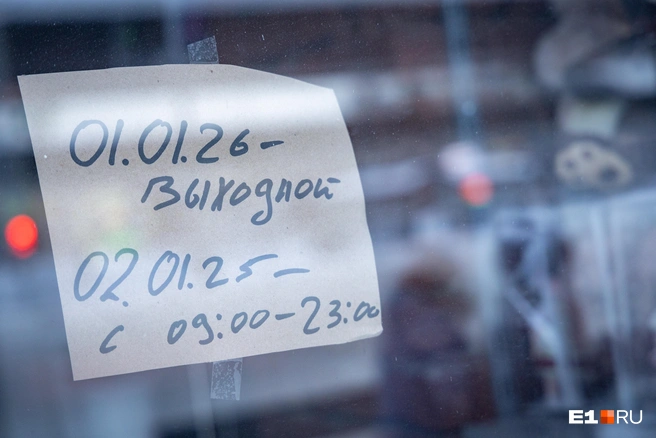 01.01.26-
Выходной
02.01.25-
с 09:00-23:00
E1.RU